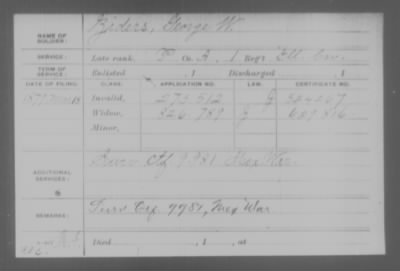 NAME OF SOLDIER: Riders, George W.
SERVICE: Late rank, P Co. A, 1 Reg't Ill. Cav.
TERM OF SERVICE: Enlisted , 1 Discharged , 1
DATE OF FILING. CLASS. APPLICATION NO. LAW. CERTIFICATE NO.
Invalid, 275,512
Widow, 826,789
Minor,
ADDITIONAL SERVICES: Surv Ctf 9981 Mex War.
REMARKS: Surv Ctf. 9981, Mex War.
Died , 1 , at